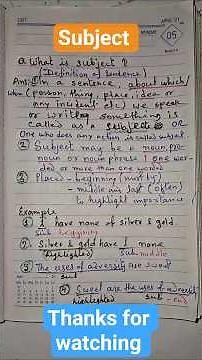 Subject
Q. What is subject ?
(Definition of Sentence)
Ans: ① In a sentence, about which/
whom (person, thing, place, idea or
any incident etc) we speak
or writing something is
called as subject OR
One who does any action is called subject.
② Subject may be a noun, pro-
noun or noun phrase 1 one wor-
ded or more than one worded
③ Place - beginning (mostly)
- middle and last (often)
to highlight importance
Example
① I have none of silver & gold.
sub beginning
② Silver & gold have I none
(highlighted) sub middle
③ The uses of adversity are sweet
sub
④ Sweet are the uses of adversity
highlighted sub - end
Thanks for
watching